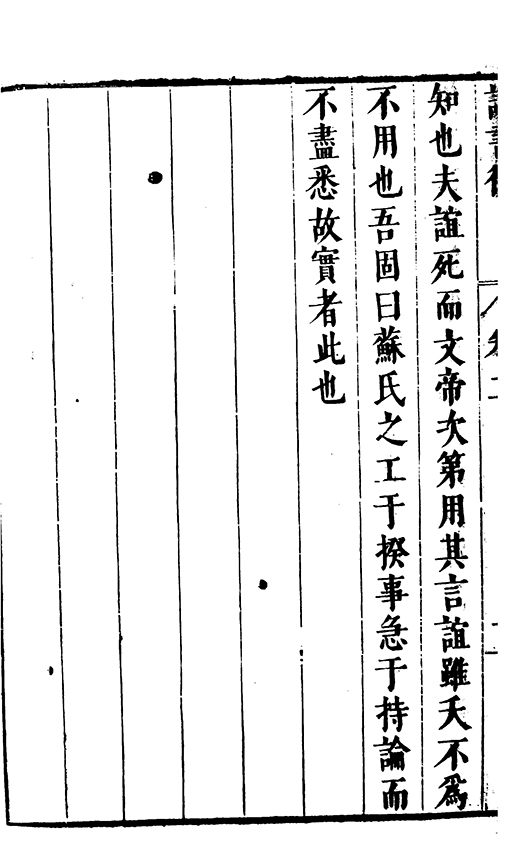 讀書後 卷二
知也夫誼死而文帝次第用其言誼雖夭不為
不用也吾固曰蘇氏之工于揆事急于持論而
不盡悉故實者此也